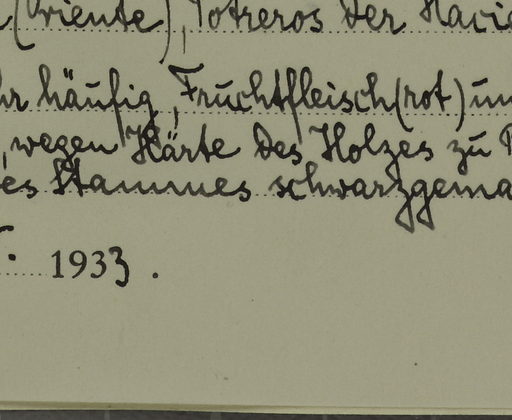 (Oriente), Potreros der Haci
hr häufig, Fruchtfleisch (rot) un
, wegen Härte des Holzes zu
es Stammes schwarzgema
1933.